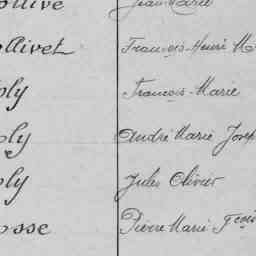 ollive Jean Marie
ollivet François-Henri M
oly François-Marie
oly André Marie Josep
oly Jules Olivier
osse Pierre Marie Fçois